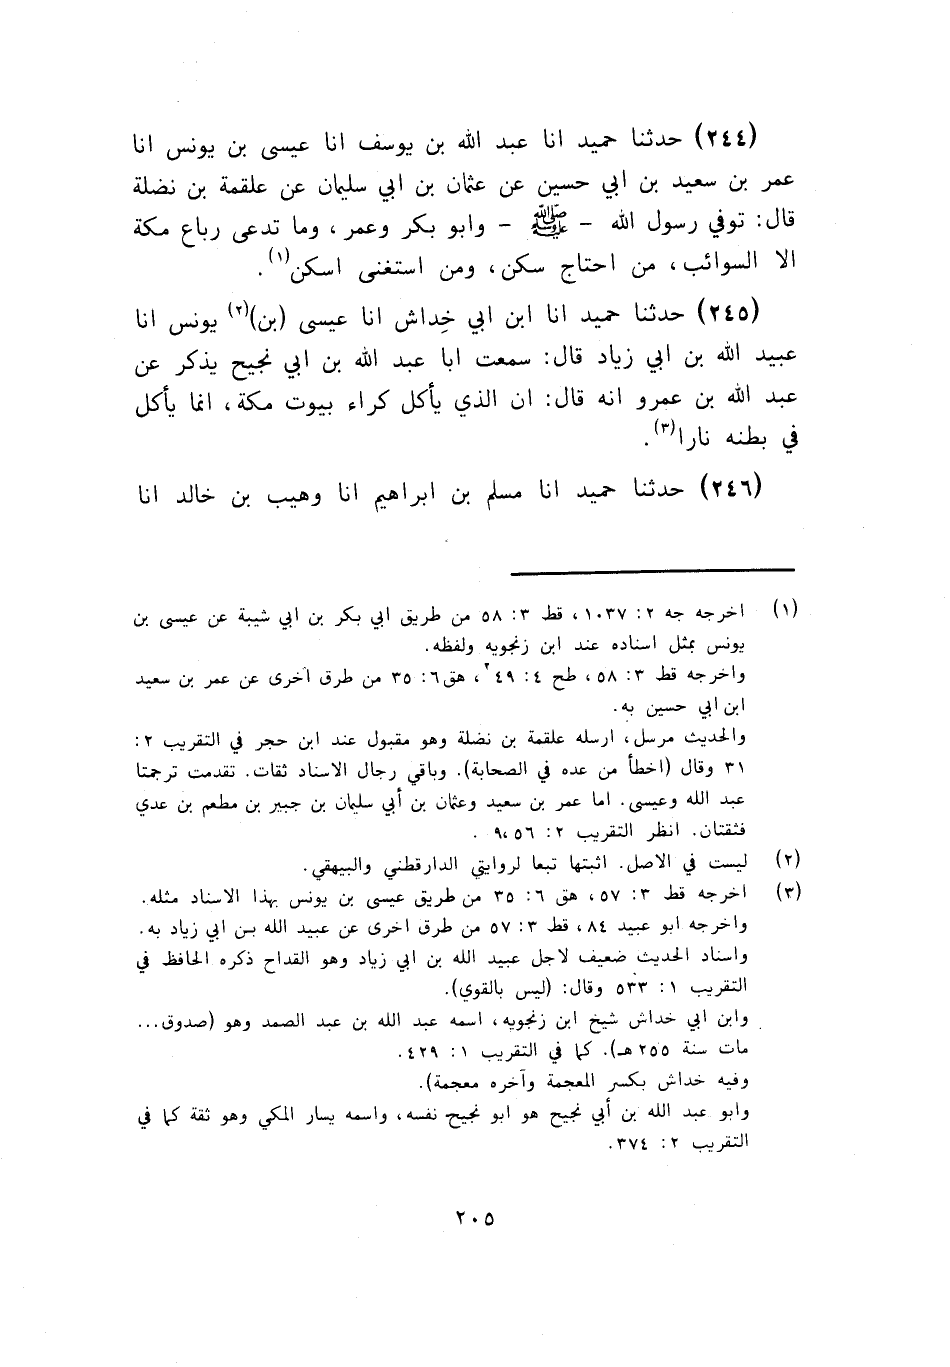 (٢٤٤) حدثنا حميد انا عبد الله بن يوسف انا عيسى بن يونس انا
عمر بن سعيد بن ابي حسين عن عثمان بن ابي سليمان عن علقمة بن نضلة
قال: توفي رسول الله - ﷺ - وابو بكر وعمر، وما تدعى رباع مكة
الا السوائب، من احتاج سكن، ومن استغنى اسكن(١).
(٢٤٥) حدثنا حميد انا ابن ابي خِداش انا عيسى (بن)(٢) يونس انا
عبيد الله بن ابي زياد قال: سمعت ابا عبد الله بن ابي نجيح يذكر عن
عبد الله بن عمرو انه قال: ان الذي يأكل كراء بيوت مكة، انما يأكل
في بطنه نارا(٣).
(٢٤٦) حدثنا حميد انا مسلم بن ابراهيم انا وهيب بن خالد انا
(١) اخرجه جه ٢: ١٠٣٧، قط ٣: ٥٨ من طريق ابي بكر بن ابي شيبة عن عيسى بن
يونس بمثل اسناده عند ابن زنجويه ولفظه.
واخرجه قط ٣: ٥٨، طح ٤: ٤٩٢، هق٦: ٣٥ من طرق اخرى عن عمر بن سعيد
ابن ابي حسين به.
والحديث مرسل، ارسله علقمة بن نضلة وهو مقبول عند ابن حجر في التقريب ٢:
٣١ وقال (اخطأ من عده في الصحابة). وباقي رجال الاسناد ثقات. تقدمت ترجمتا
عبد الله وعيسى. اما عمر بن سعيد وعثمان بن أبي سليمان بن جبير بن مطعم بن عدي
فثقتان. انظر التقريب ٢: ٥٦، ٩ .
(٢) ليست في الاصل. اثبتها تبعا لروايتي الدارقطني والبيهقي.
(٣) اخرجه قط ٣: ٥٧، هق ٦: ٣٥ من طريق عيسى بن يونس بهذا الاسناد مثله.
واخرجه ابو عبيد ٨٤، قط ٣: ٥٧ من طرق اخرى عن عبيد الله بن ابي زياد به.
واسناد الحديث ضعيف لاجل عبيد الله بن ابي زياد وهو القداح ذكره الحافظ في
التقريب ١: ٥٣٣ وقال: (ليس بالقوي).
وابن ابي خداش شيخ ابن زنجويه، اسمه عبد الله بن عبد الصمد وهو (صدوق...
مات سنة ٢٥٥ هـ). كما في التقريب ١: ٤٢٩.
وفيه خداش بكسر المعجمة وآخره معجمة).
وابو عبد الله بن أبي نجيح هو ابو نجيح نفسه، واسمه يسار المكي وهو ثقة كما في
التقريب ٢: ٣٧٤.
٢٠٥